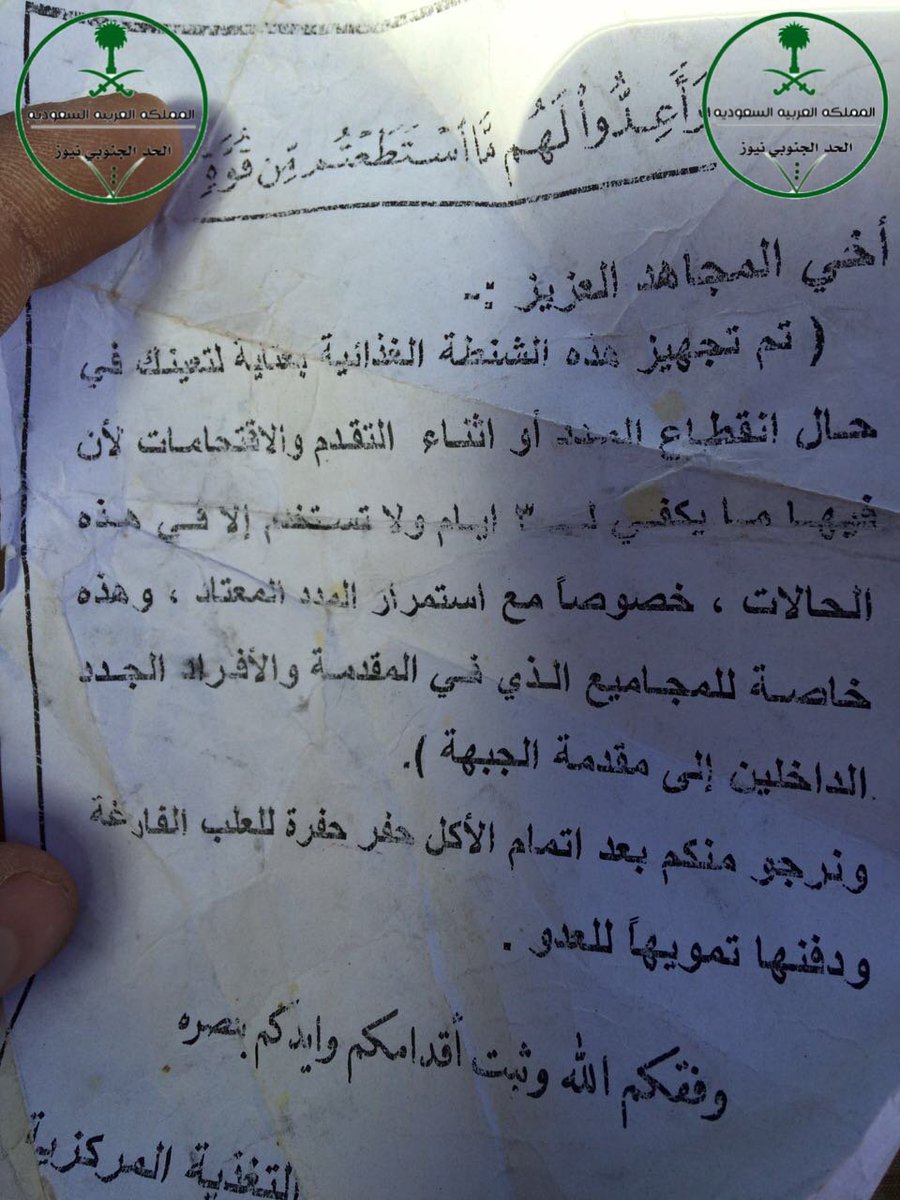 المملكة العربية السعودية
الحد الجنوبي نيوز
المملكة العربية السعودية
الحد الجنوبي نيوز
وَأَعِدُّوا لَهُم مَّا اسْتَطَعْتُم مِّن قُوَّةٍ
أخي المجاهد العزيز :-
( تم تجهيز هذه الشنطة الغذائية بعناية لتعينك في
حال انقطاع المدد أو اثناء التقدم والاقتحامات لأن
فيها ما يكفي لـ ٣ ايام ولا تستخدم إلا في هذه
الحالات ، خصوصاً مع استمرار المدد المعتاد ، وهذه
خاصة للمجاميع الذي في المقدمة والأفراد الجدد
الداخلين إلى مقدمة الجبهة ).
ونرجو منكم بعد اتمام الأكل حفر حفرة للعلب الفارغة
ودفنها تمويهاً للعدو .
وفقكم الله وثبت أقدامكم وايدكم بنصره
التغذية المركزية